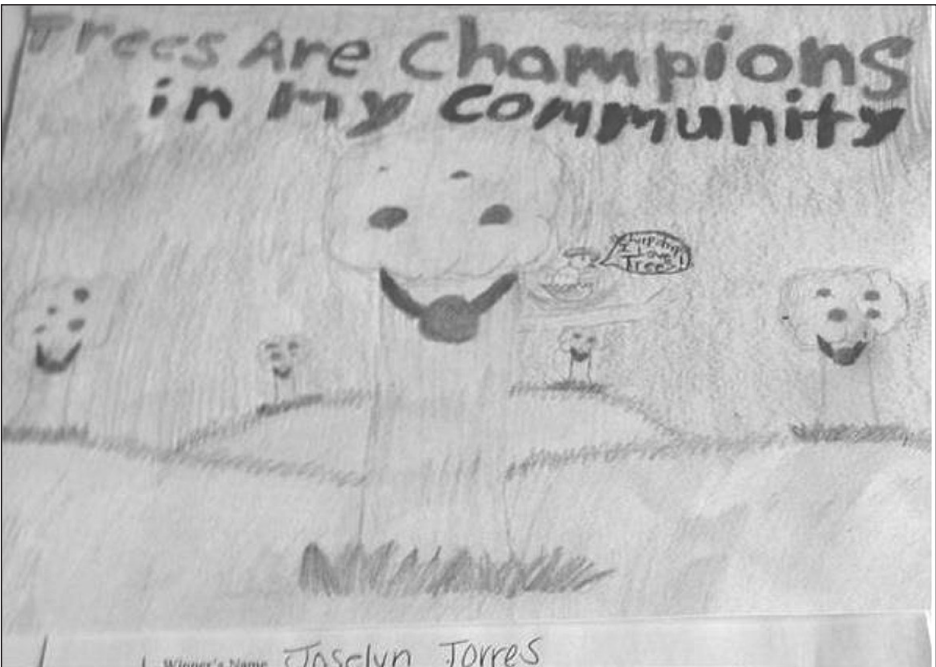 Trees Are Champions
in my community
Chirp chirp
I Love
Trees!
Winner's Name Joselyn Torres